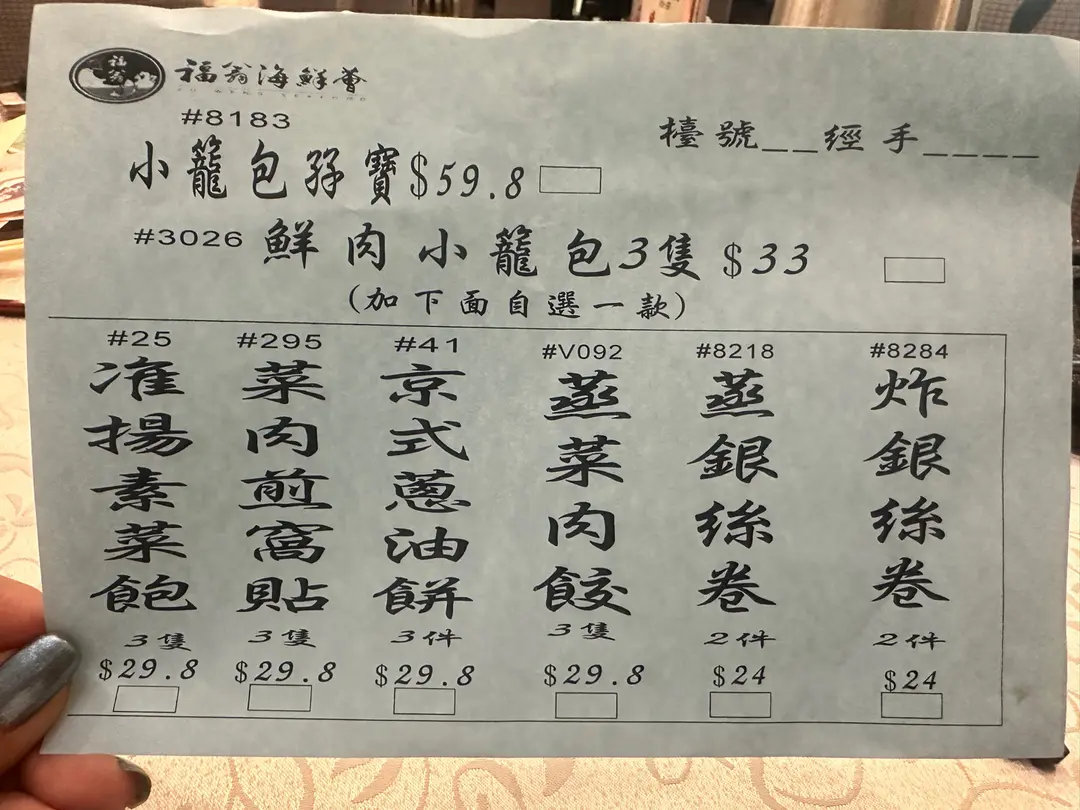 福翁
福翁海鮮薈
#8183
檯號__經手____
小籠包孖寶$59.8
#3026 鮮肉小籠包3隻 $33
(加下面自選一款)
#25 #295 #41 #V092 #8218 #8284
准揚素菜飽
菜肉煎窩貼
京式蔥油餅
蒸菜肉餃
蒸銀絲卷
炸銀絲卷
3隻 3隻 3件 3隻 2件 2件
$29.8 $29.8 $29.8 $29.8 $24 $24